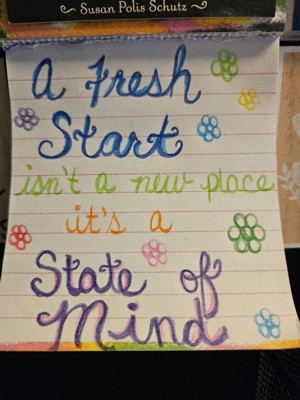 ~Susan Polis Schutz~
a Fresh
Start
isn't a new place
it's a
State of
Mind